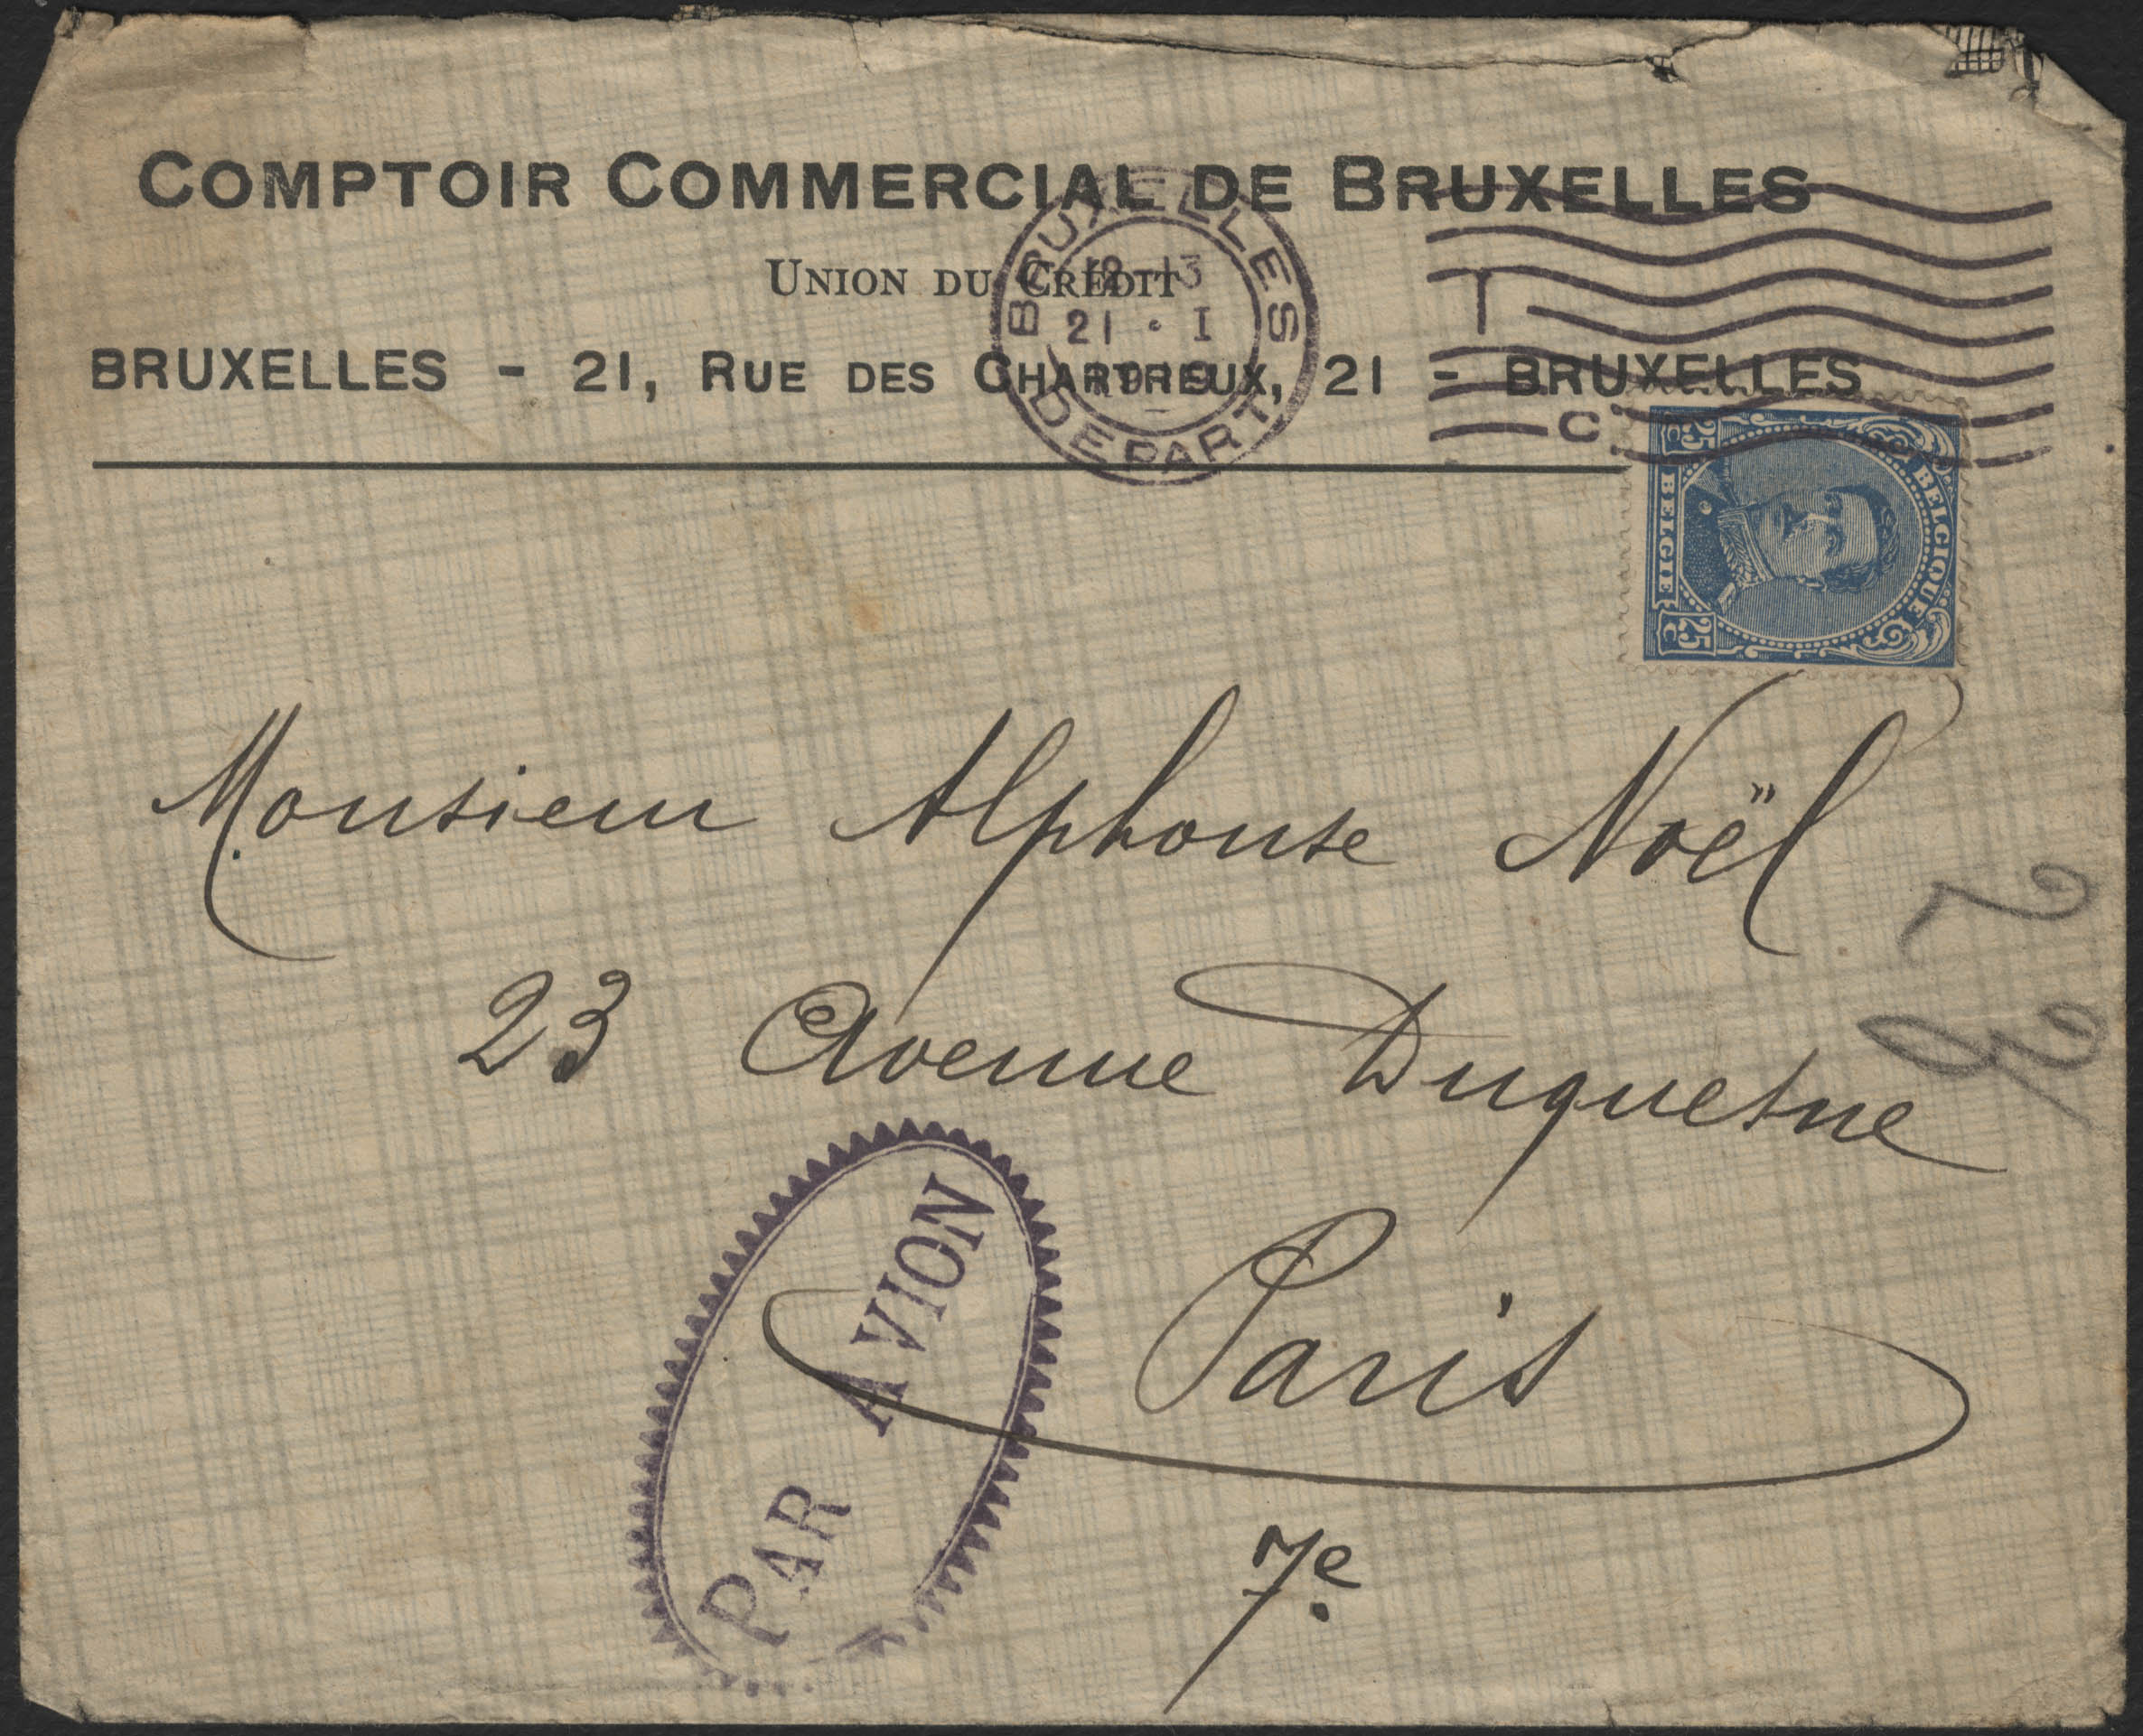 COMPTOIR COMMERCIAL DE BRUXELLES
UNION DU CRÉDIT
BRUXELLES - 21, RUE DES CHARTREUX, 21 - BRUXELLES
BRUXELLES
12-13
21 · I
1919
DEPART
T
C
BELGIQUE
BELGIE
25 C
25 C
Monsieur Alphonse Noël
23 Avenue Duquesne
Paris
7e
PAR AVION